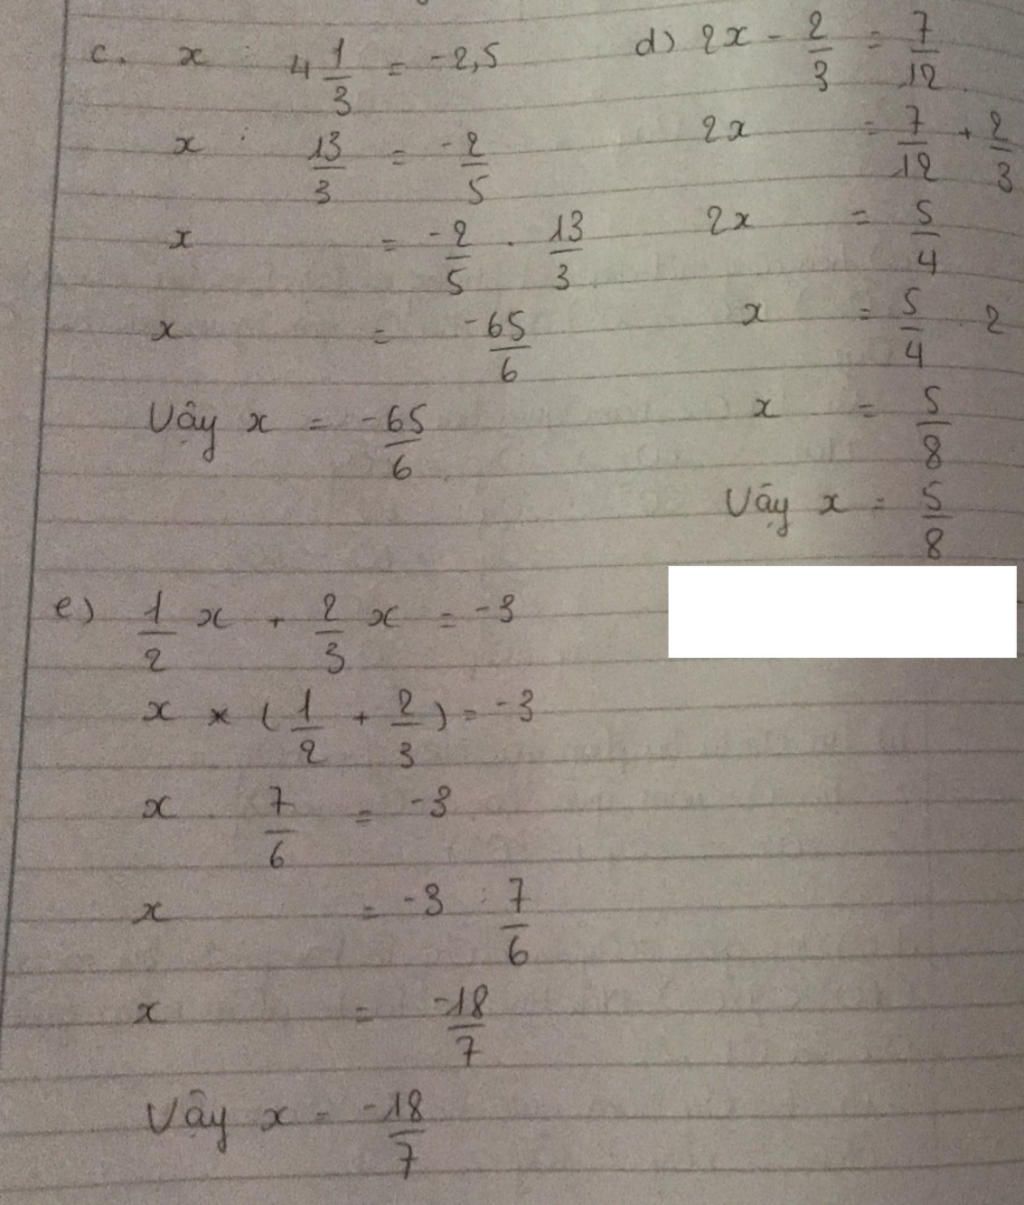 c. x : 4 1/3 = -2,5
x : 13/3 = -2/5
x = -2/5 . 13/3
x = -65/6
Vậy x = -65/6
d) 2x - 2/3 = 7/12
2x = 7/12 + 2/3
2x = 5/4
x = 5/4 : 2
x = 5/8
Vậy x = 5/8
e) 1/2 x + 2/3 x = -3
x * (1/2 + 2/3) = -3
x . 7/6 = -3
x = -3 : 7/6
x = -18/7
Vậy x = -18/7